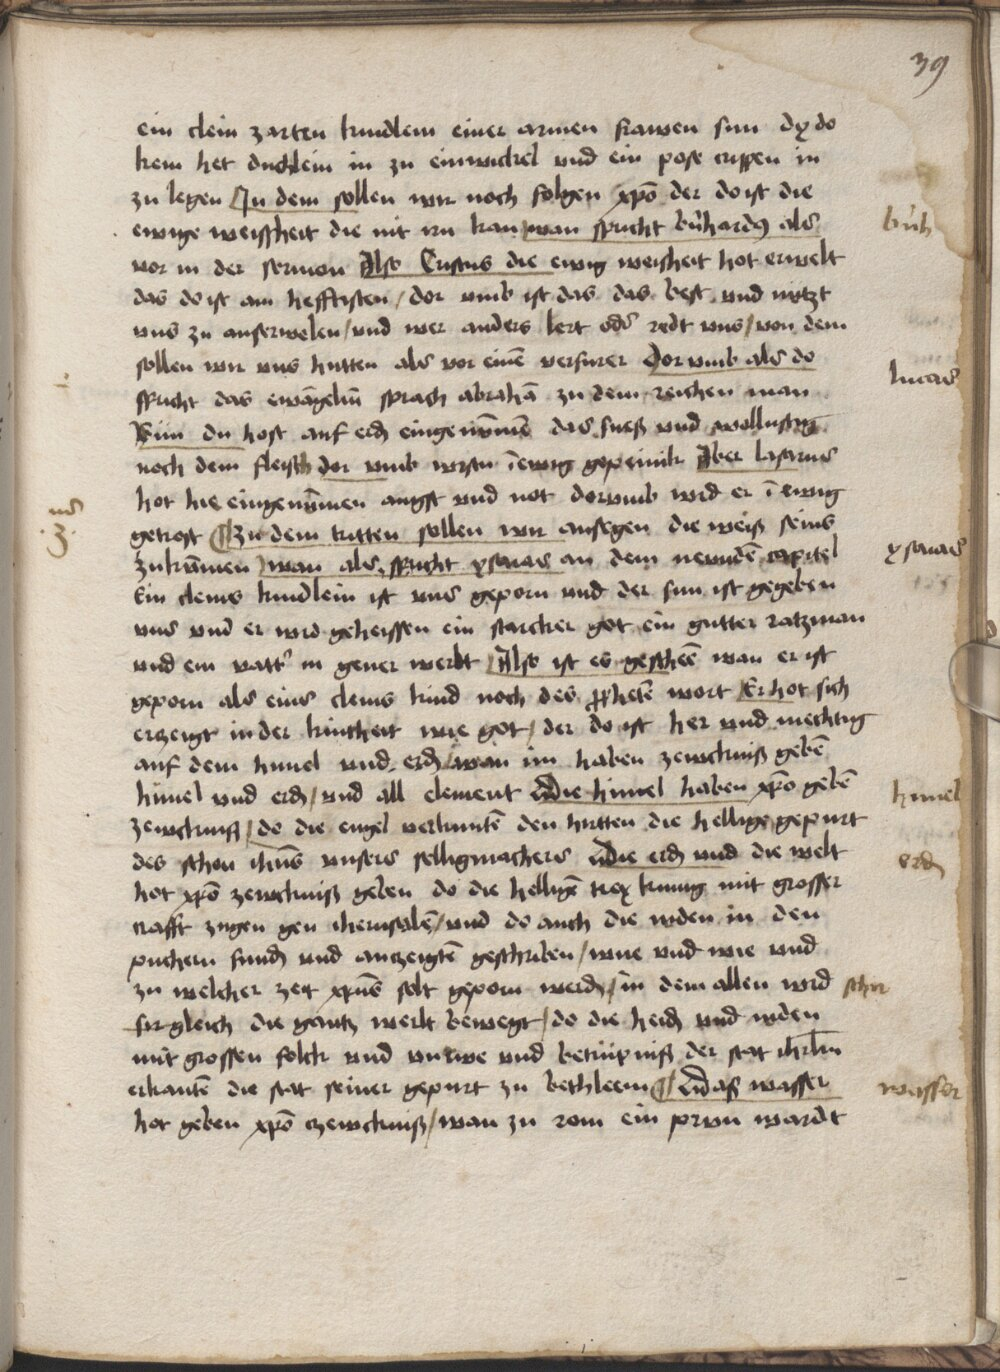 39
ein clein zarten kindlein einer armen frawen sun dy do
kein het duchlein in zu einwickel und ein pose crippen in
zu legen In dem sollen wir noch folgen xpo der do ist die
ewige weissheit die nit irn kan wan spricht bnhardus als
vor in der sermon Also Cristus die ewig weisheit hot erwelt
das do ist am hefftisten / dor umb ist das das best und nutzt
uns zu auserwelen / und wer anders lert oder redt uns / von dem
sollen wir uns hutten als vor eine verfurer Dor umb als do
spricht das ewangeliu sprach abraha zu dem reichen man
Sun du host auf erd eingenumen das sueß und wollustig
noch dem fleisch dor umb wirstu i ewig gepeinik Aber lasarus
hot hie eingenumen angst und not dorumb wird er i ewig
getrost zu dem tritten sollen wir ansegen die weiß seins
zukumen wan als spricht ysaias an dem newnden capitel
Ein cleins kindlein ist uns geporn und der sun ist gegeben
uns und er wird geheissen ein starcker got ein gutter ratzman
und ein vatter in gener werlt Also ist es geschee wan er ist
geporn als eins cleins kind noch des pphete wort Er hot sich
erzeigt in der kintheit wie got / der do ist her und mechtig
auf dem himel und erd / wan im haben zewcknuß gebe
himel und erd / und all element Die himel haben xpo gebe
zewcknuß / do die engel verkunte den hirtten die hellige gepurt
des schon ihus unsers selligmachers Die erd und die welt
hot xpo zewcknuß geben do die hellige trey kunig mit grosser
crafft zugen gen iherusale / und do auch die iuden in den
puchern fund und anzeigte geschriben / wue und wie und
zu welcher zeit xpus solt geporn werd / in dem allen wird
sir gleich die gantz werlt bewegt / do die heid und iuden
mit grossen folck und unrwe und betrupniß der stat ihrlm
erkante die stat seiner gepurt zu bethleem Daß wasser
hot geben xpo czewcknuß / wan zu rom ein prun wardt
bnh
lucas
3
ysaias
himel
erd
wasser